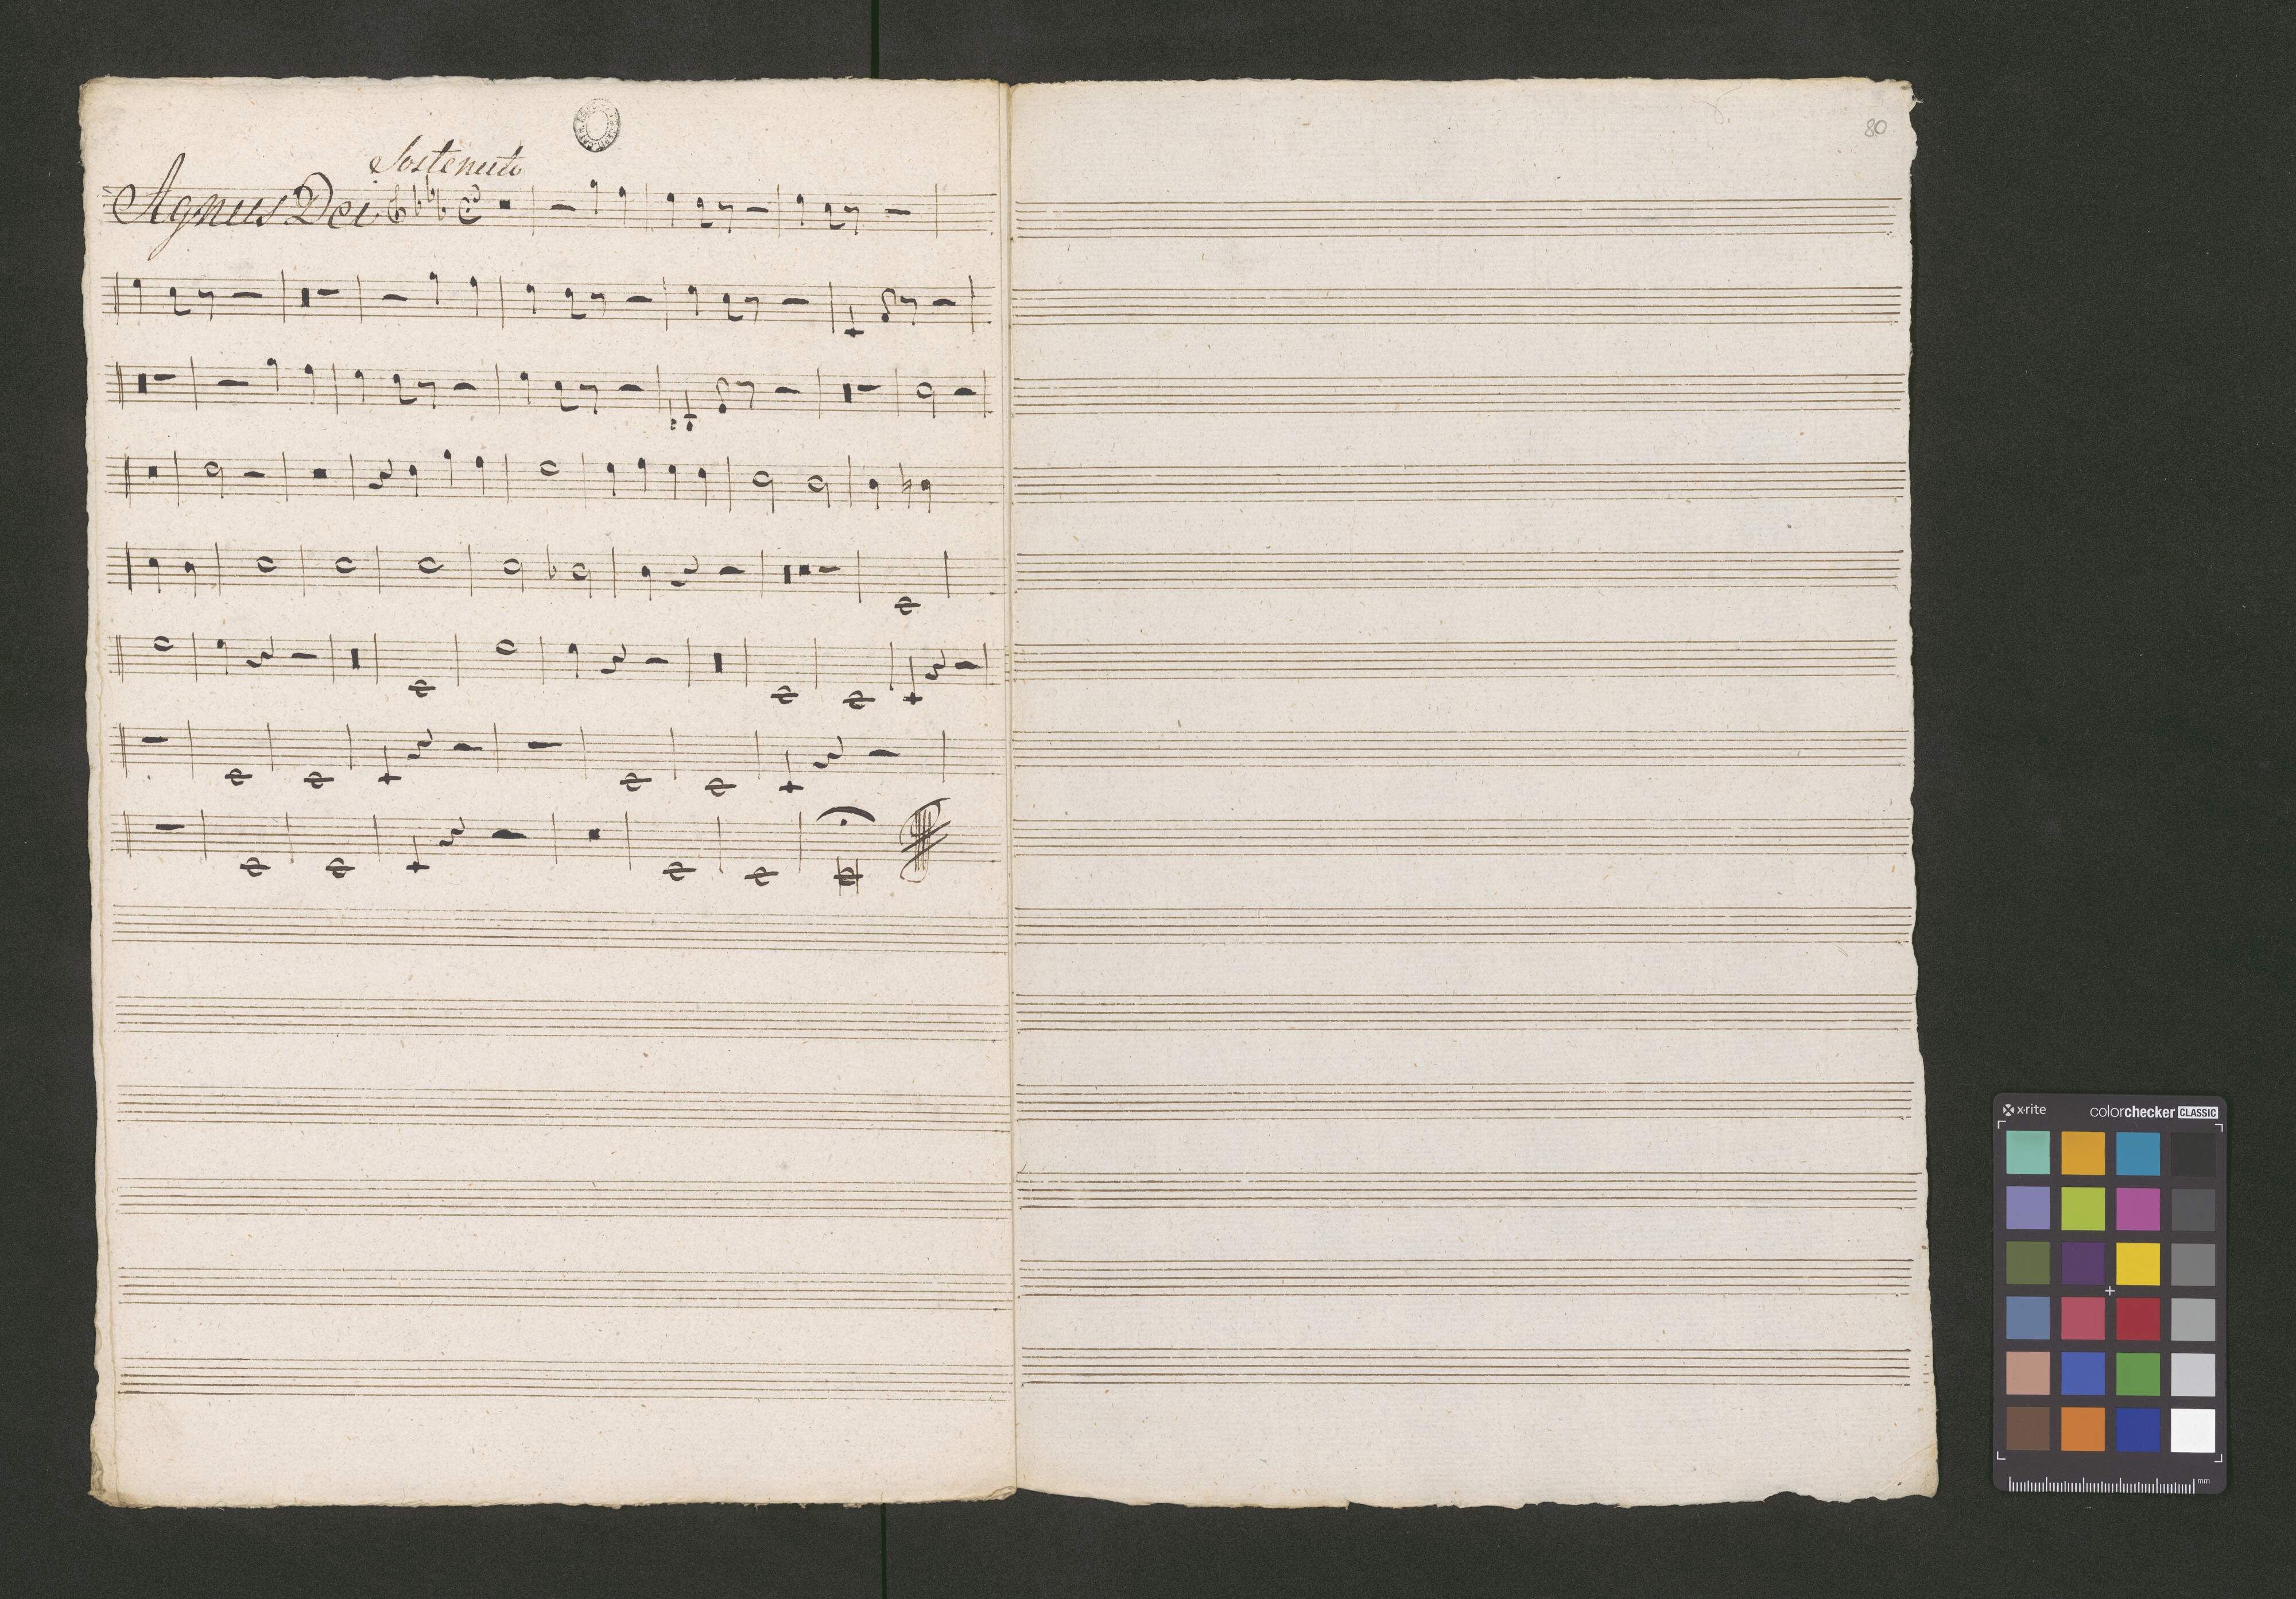 Sostenuto
Agnus Dei
80
x·rite colorchecker CLASSIC
mm